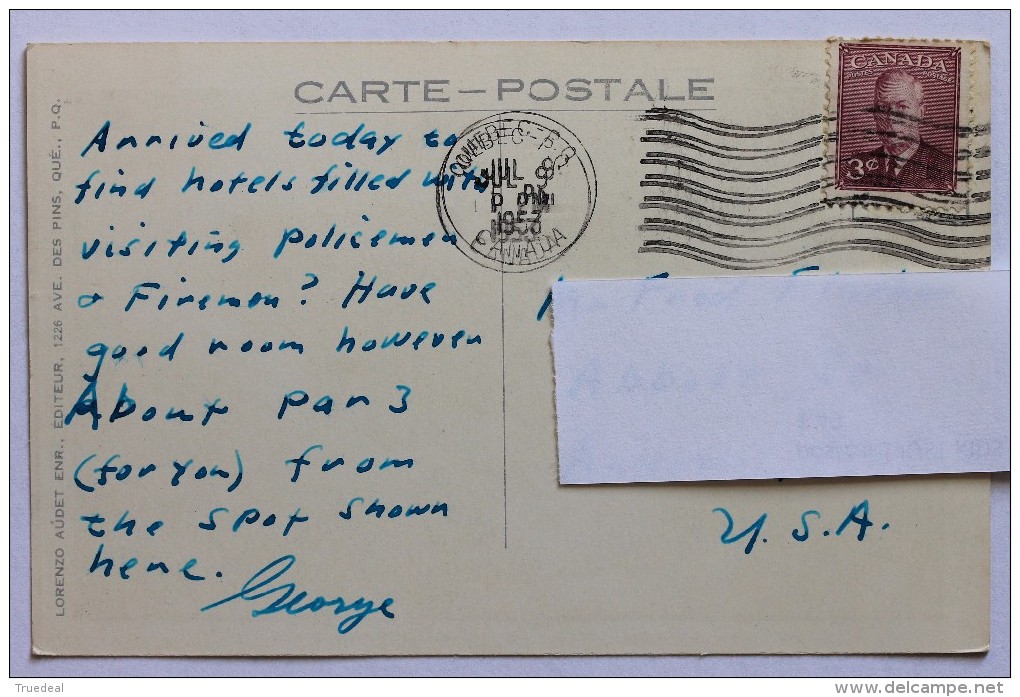 CARTE – POSTALE
CANADA
POSTES POSTAGE
3¢
QUEBEC
JUL 9
PM
1953
CANADA
Arrived today to
find hotels filled with
visiting policemen
& Firemen? Have
good room however
About par 3
(for you) from
the spot shown
here.
George
U.S.A.
LORENZO AUDET ENR., ÉDITEUR, 1226 AVE. DES PINS, QUÉ., P.Q.
Truedeal
www.delcampe.net